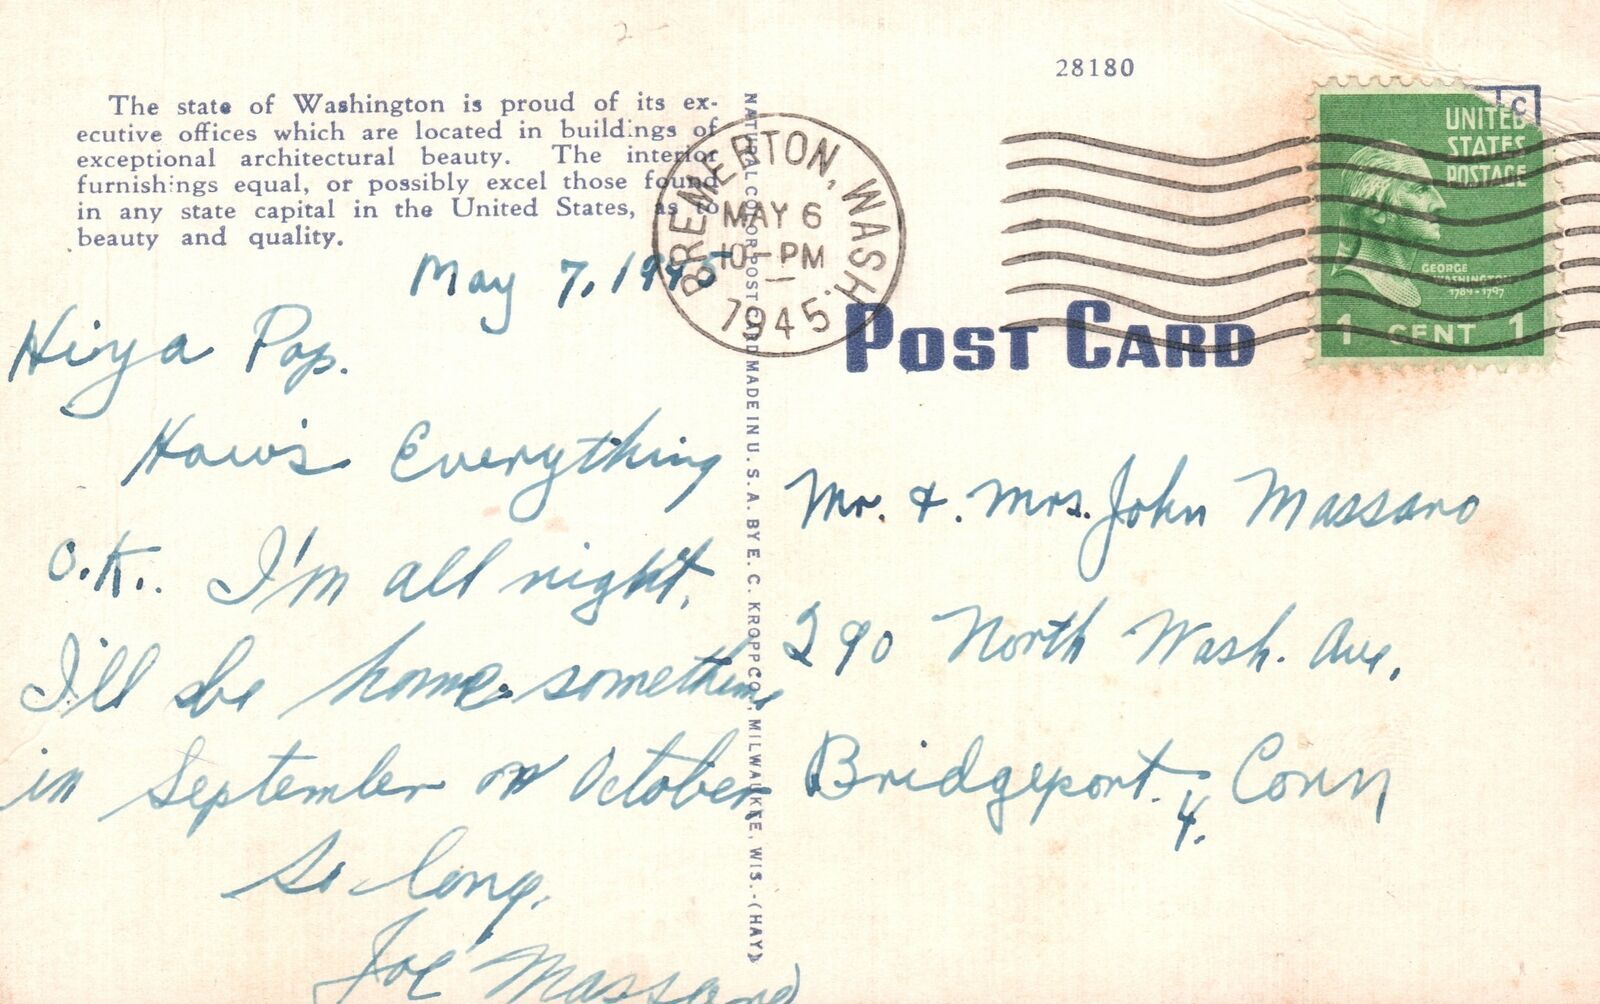 28180
The state of Washington is proud of its ex-
ecutive offices which are located in buildings of
exceptional architectural beauty. The interior
furnishings equal, or possibly excel those found
in any state capital in the United States, as to
beauty and quality.
May 7, 1945
Hiya Pop.
How's Everything
O.K.. I'm all night,
I'll be home sometime
in September or October
So long.
Joe Massaro
NATURAL COLOR POST CARD MADE IN U. S. A. BY E. C. KROPP CO., MILWAUKEE, WIS.-(HAY)
BREMERTON, WASH.
MAY 6
10-PM
1945
C
UNITED
STATES
POSTAGE
GEORGE
WASHINGTON
1789-1797
1 CENT 1
POST CARD
Mr. & Mrs. John Massaro
290 North Wash. Ave.,
Bridgeport. 4. Conn